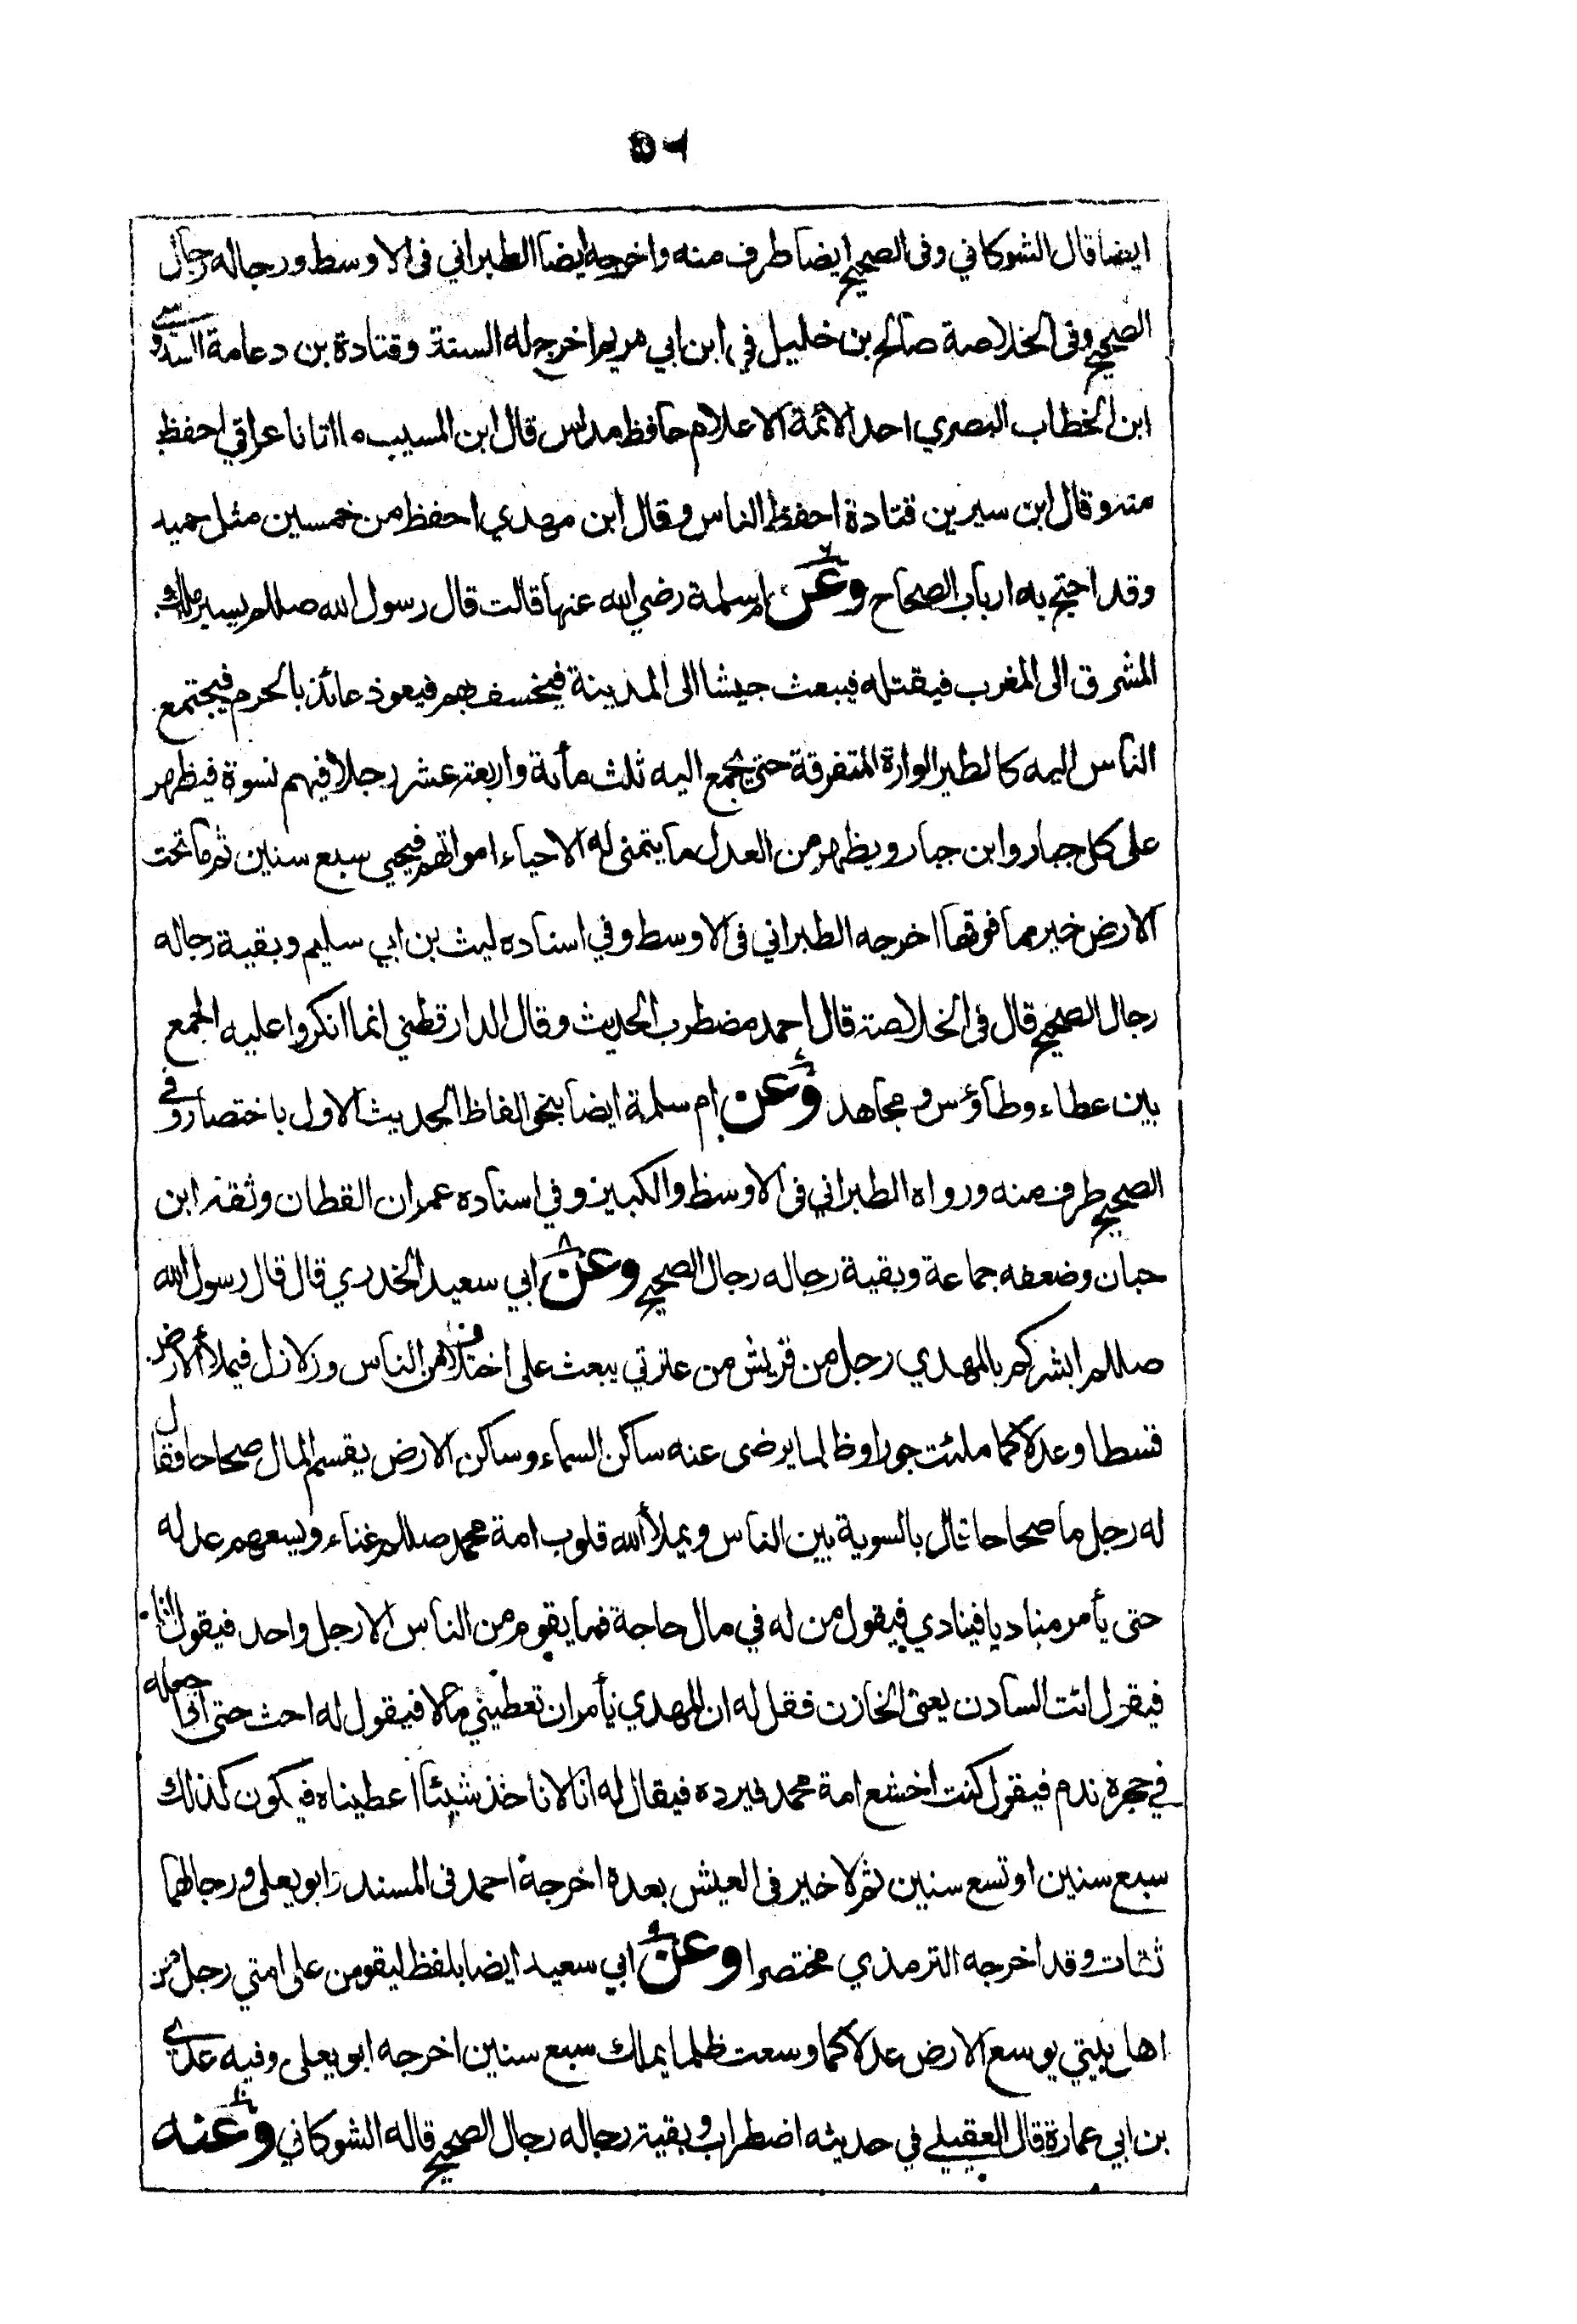 ايضا قال الشوكاني وفى الصحيح ايضا طرف منه واخرجه ايضا الطبراني فى الاوسط ورجاله رجال
الصحيح وفى الخلاصة صالح بن خليل في ابن ابي مريم اخرج له الستة وقتادة بن دعامة السدوسي
ابن الخطاب البصري احد الائمة الاعلام حافظ مدلس قال ابن المسيب ما اتانا عراقي احفظ
منه وقال ابن سيرين قتادة احفظ الناس وقال ابن مهدي احفظ من خمسين مثل حميد
وقد احتج به ارباب الصحاح وعن ام سلمة رضي الله عنها قالت قال رسول الله صللم يسير ملك
المشرق الى المغرب فيقتله فيبعث جيشا الى المدينة فيخسف بهم فيعوذ عائذ بالحرم فيجتمع
الناس اليه كالطير الوارة المتفرقة حتى يجمع اليه ثلث مأئة واربعة عشر رجلا فيهم نسوة فيظهر
على كل جبار وابن جبار ويظهر من العدل ما يتمنى له الاحياء امواتهم فيحيي سبع سنين ثم ما تحت
الارض خير مما فوقها اخرجه الطبراني فى الاوسط وفي اسناده ليث بن ابي سليم وبقية رجاله
رجال الصحيح قال فى الخلاصة قال احمد مضطرب الحديث وقال الدارقطني انما انكروا عليه الجمع
بين عطاء وطاؤس ومجاهد وعن ام سلمة ايضا بنحو الفاظ الحديث الاول باختصار وفى
الصحيح طرف منه ورواه الطبراني فى الاوسط والكبير وفي اسناده عمران القطان وثقه ابن
حبان وضعفه جماعة وبقية رجاله رجال الصحيح وعن ابي سعيد الخدري قال قال رسول الله
صللم ابشركم بالمهدي رجل من قريش من عترتي يبعث على اختلاف من الناس وزلازل فيملأ الارض
قسطا وعدلا كما ملئت جورا وظلما يرضى عنه ساكن السماء وساكن الارض يقسم المال صحاحا فقال
له رجل ما صحاحا قال بالسوية بين الناس ويملأ الله قلوب امة محمد صللم غناء ويسعهم عدله
حتى يأمر مناديا فينادي فيقول من له في مال حاجة فما يقوم من الناس الا رجل واحد فيقول انا
فيقول ائت السادن يعنى الخازن فقل له ان المهدي يأمر ان تعطيني مالا فيقول له احث حتى اذا جعله
في حجره ندم فيقول كنت اخشع امة محمد فيرده فيقال له انا لا نأخذ شيئا اعطيناه فيكون كذلك
سبع سنين او تسع سنين ثم لا خير فى العيش بعده اخرجه احمد فى المسند وابو يعلى ورجالهما
ثقات وقد اخرجه الترمذي مختصرا وعن ابي سعيد ايضا بلفظ ليقومن على امتي رجل من
اهل بيتي يوسع الارض عدلا كما وسعت ظلما يملك سبع سنين اخرجه ابو يعلى وفيه عدي
بن ابي عمارة قال العقيلي في حديثه اضطراب وبقية رجاله رجال الصحيح قاله الشوكاني وعنه